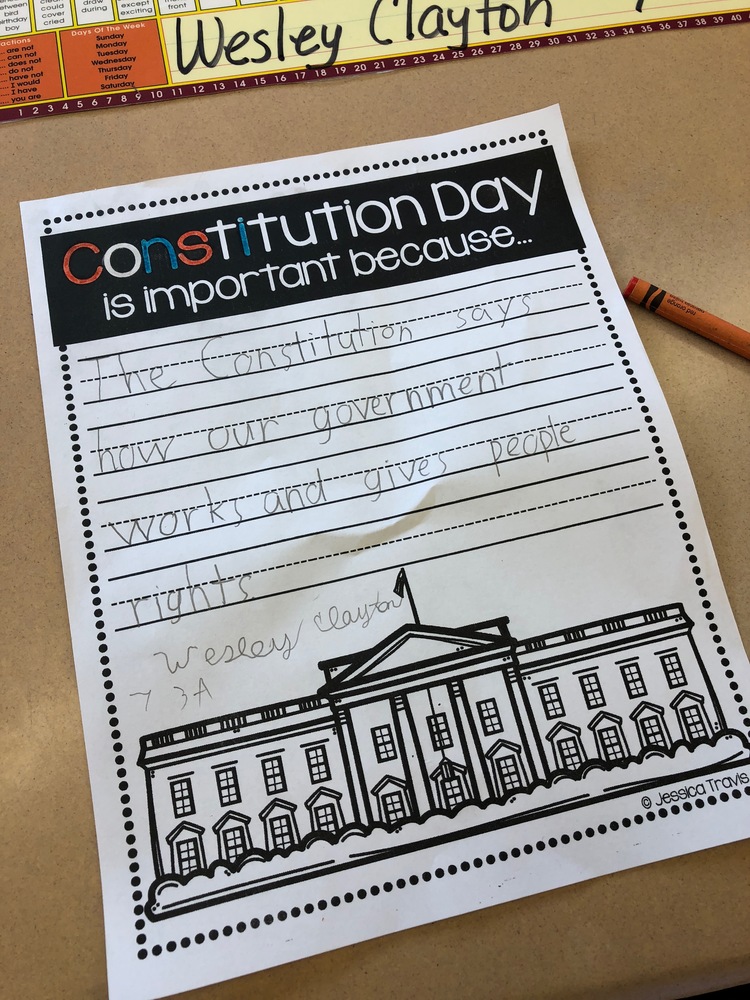 between
bird
birthday
boy
clean
could
cover
cried
draw
during
except
exciting
front
are not
can not
does not
do not
have not
I would
I have
you are
Days Of The Week
Sunday
Monday
Tuesday
Wednesday
Thursday
Friday
Saturday
Wesley Clayton
1 2 3 4 5 6 7 8 9 10 11 12 13 14 15 16 17 18 19 20 21 22 23 24 25 26 27 28 29 30 31 32 33 34 35 36 37 38 39 40
Constitution Day
is important because...
The Constitution says
how our government
works and gives people
rights
Wesley Clayton
7 3A
© Jessica Travis